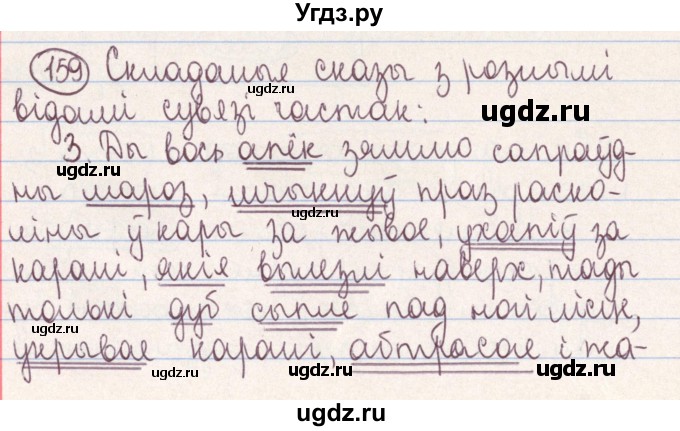 Угдз.ру
159 Складаныя сказы з рознымі
відамі сувязі частак:
3. Ды вось апёк зямлю сапраўд-
ны мароз, шчыкнуў праз раско-
ліны ў кары за жывое, ухапіў за
карані, якія вылезлі наверх, тады
толькі дуб сыпле пад ной лісце,
укрывае карані, абтрасае і жа-
ugdz.ru
ugdz.ru
ugdz.ru
ugdz.ru
ugdz.ru
ugdz.ru
ugdz.ru
ugdz.ru
ugdz.ru
ugdz.ru